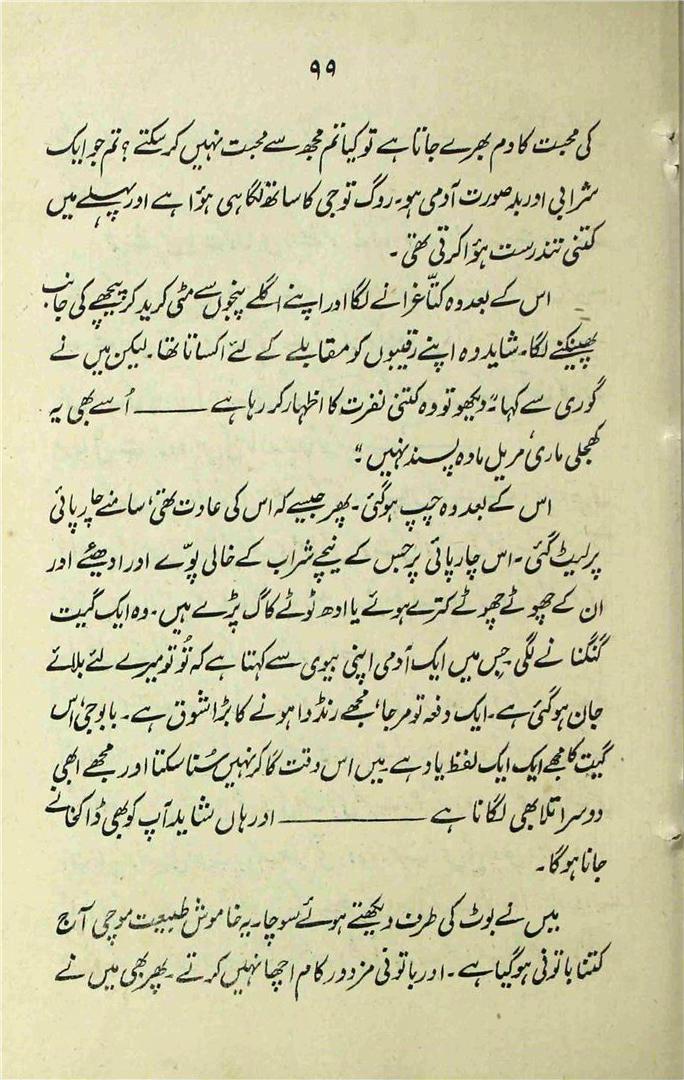 ۹۹
کی محبت کا دم بھرے جاتا ہے تو کیا تم مجھ سے محبت نہیں کر سکتے ؟ تم جو ایک
شرابی اور بد صورت آدمی ہو۔ روگ تو جی کا ساتھ لگا ہی ہؤا ہے اور پہلے میں
کتنی تندرست ہؤا کرتی تھی۔
اس کے بعد وہ کتّا غرانے لگا اور اپنے اگلے پنجوں سے مٹی کرید کر پیچھے کی جانب
پھینکنے لگا۔ شاید وہ اپنے رقیبوں کو مقابلے کے لئے اکساتا تھا۔ لیکن میں نے
گوری سے کہا۔ "دیکھو تو وہ کتنی نفرت کا اظہار کر رہا ہے ——— اُسے بھی یہ
کھجلی ماری، مریل مادہ پسند نہیں"
اس کے بعد وہ چپ ہو گئی۔ پھر جیسے کہ اس کی عادت تھی، سامنے چارپائی
پر لیٹ گئی۔ اس چارپائی پر جس کے نیچے شراب کے خالی پوّے اور ادھئے اور
ان کے چھوٹے چھوٹے کترے ہوئے یا ادھ ٹوٹے کاگ پڑے ہیں۔ وہ ایک گیت
گنگنانے لگی جس میں ایک آدمی اپنی بیوی سے کہتا ہے کہ تُو تو میرے لئے بلائے
جان ہو گئی ہے۔ ایک دفعہ تو مر جا، مجھے رنڈوا ہونے کا بڑا شوق ہے۔ بابو جی، اس
گیت کا مجھے ایک ایک لفظ یاد ہے۔ میں اس وقت گا کر نہیں سُنا سکتا اور مجھے ابھی
دوسرا تلا بھی لگانا ہے ——— اور ہاں شاید آپ کو بھی ڈاکخانے
جانا ہو گا۔
میں نے بوٹ کی طرف دیکھتے ہوئے سوچا۔ یہ خاموش طبیعت موچی آج
کتنا باتونی ہو گیا ہے۔ اور باتونی مزدور کام اچھا نہیں کرتے۔ پھر بھی میں نے